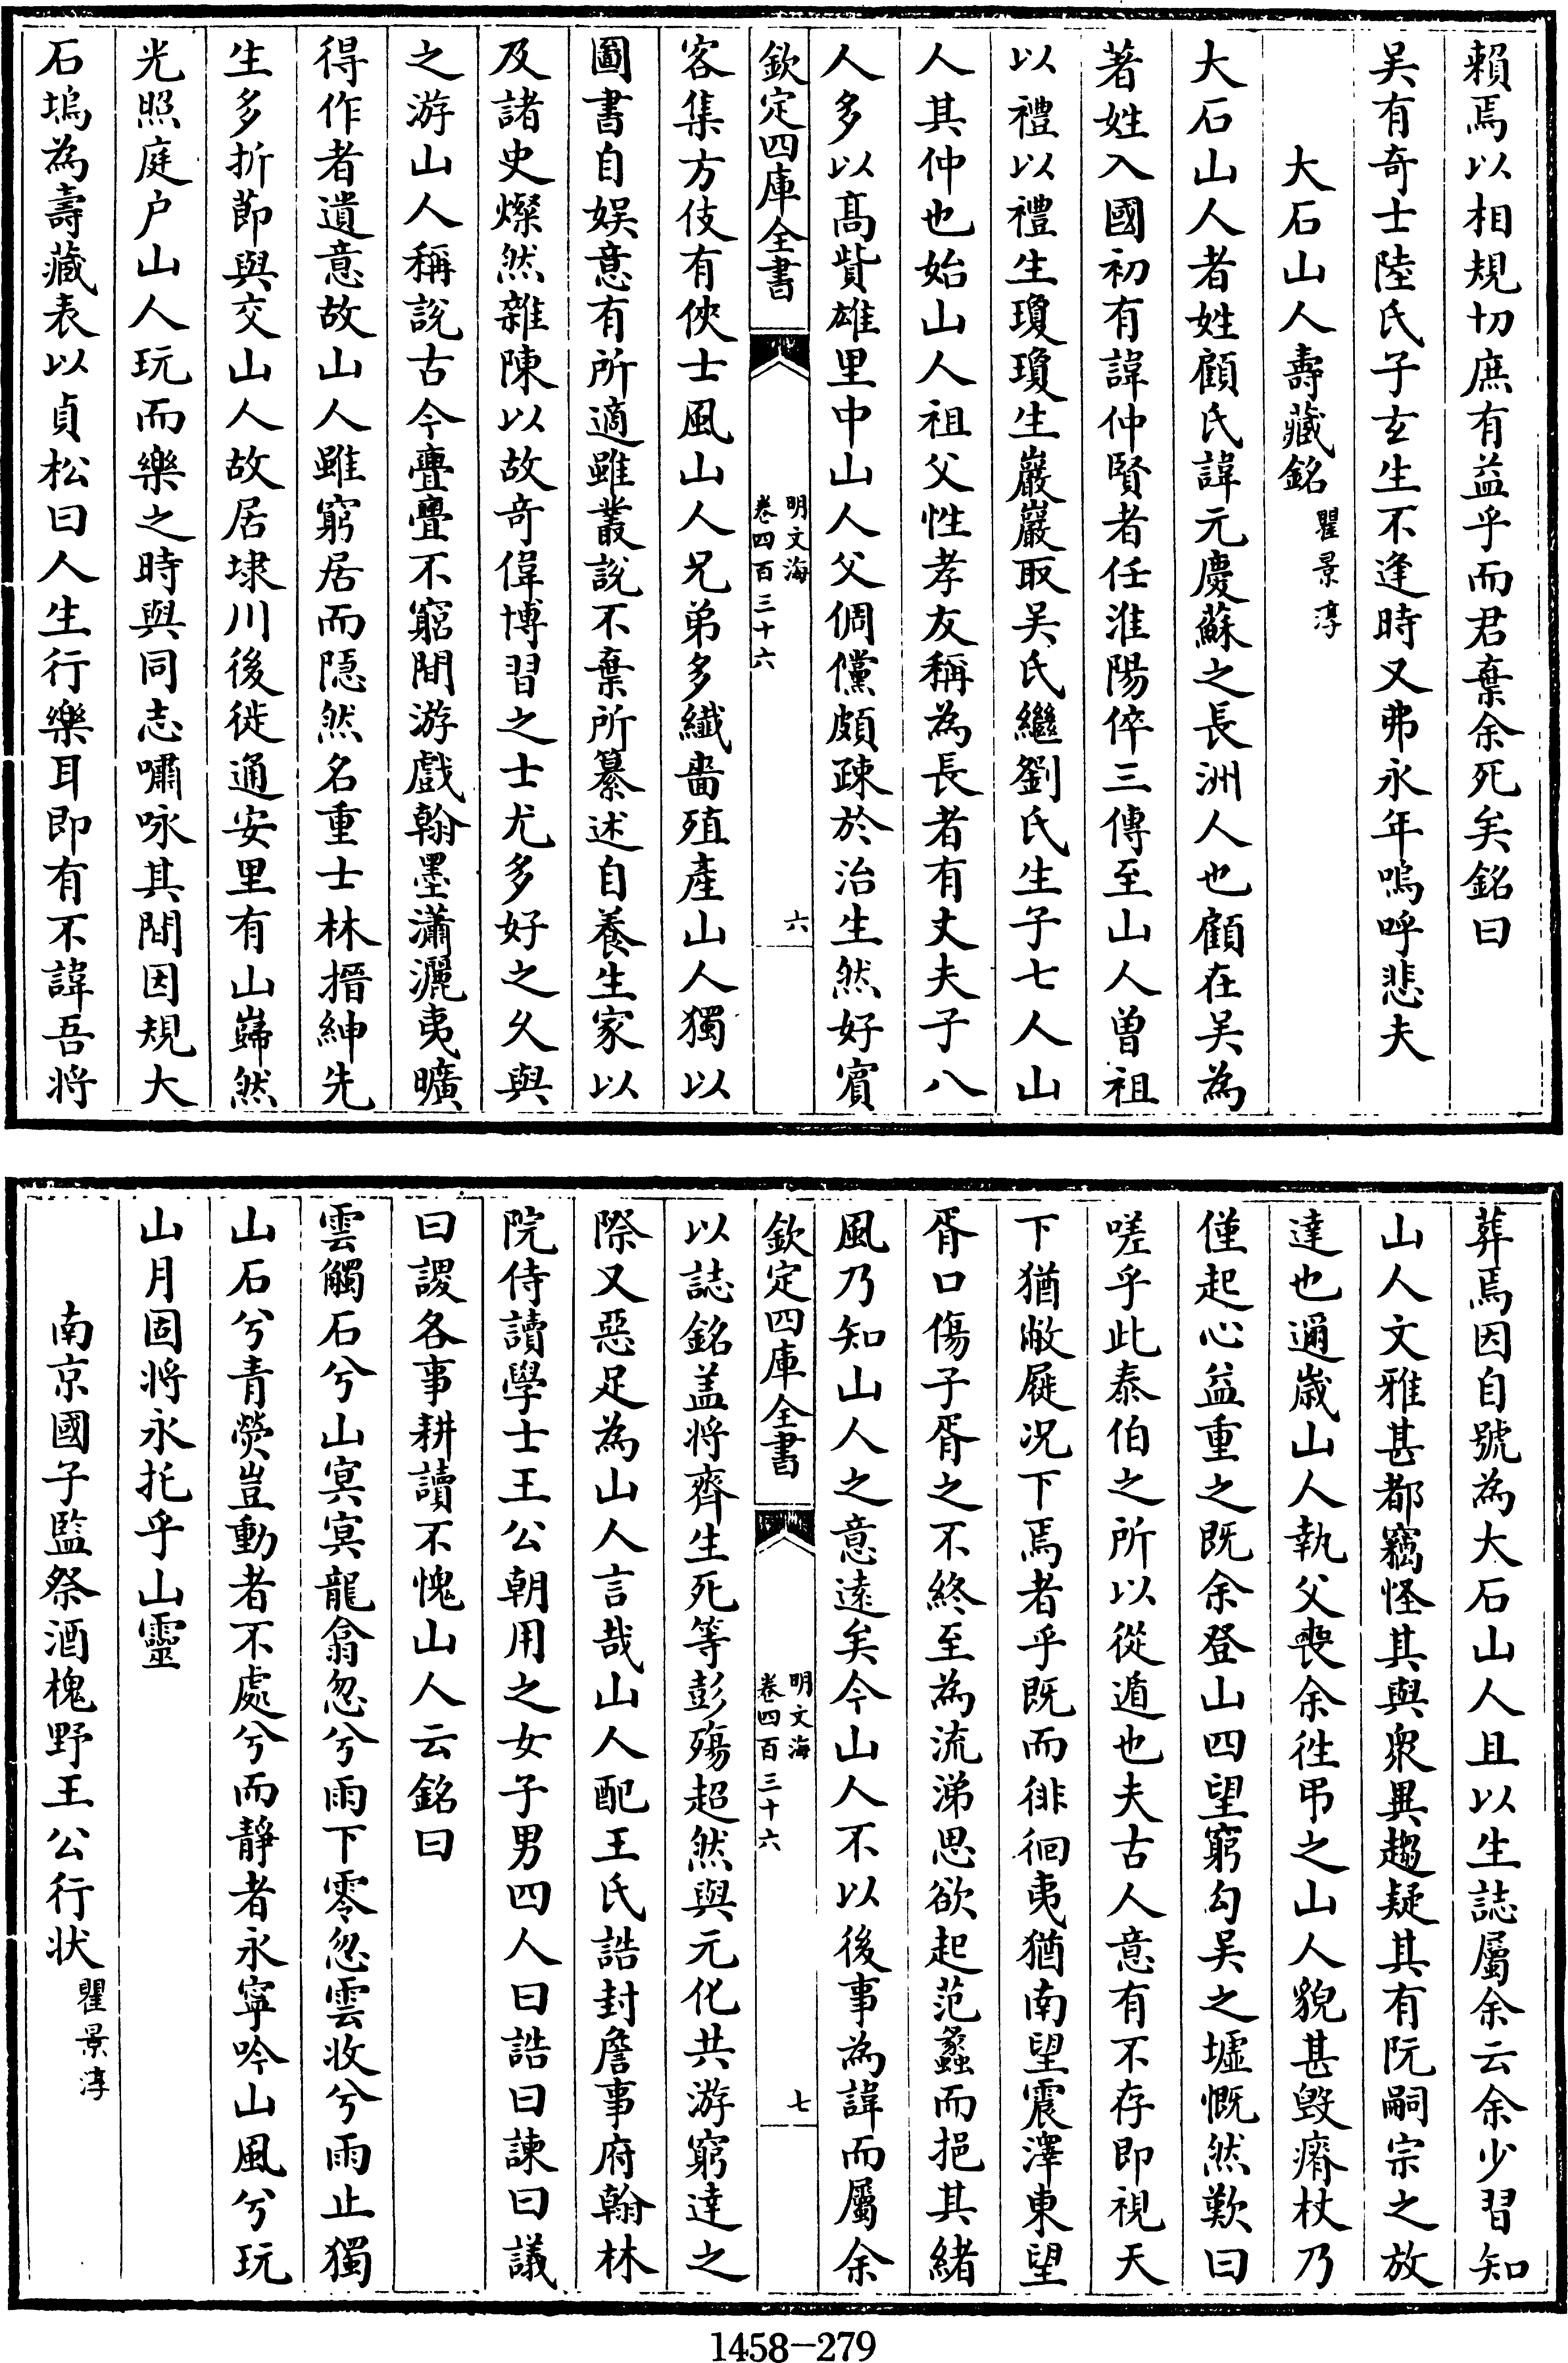 賴焉以相規切庶有益乎而君棄余死矣銘曰
吴有奇士陸氏子玄生不逢時又弗永年嗚呼悲夫
大石山人壽藏銘 瞿景淳
大石山人者姓顧氏諱元慶蘇之長洲人也顧在吴為
著姓入國初有諱仲賢者任淮陽倅三傳至山人曾祖
以禮以禮生瓊瓊生巖巖取吴氏繼劉氏生子七人山
人其仲也始山人祖父性孝友稱為長者有丈夫子八
人多以髙貲雄里中山人父倜儻頗疎於治生然好賓
欽定四庫全書
明文海
卷四百三十六
六
客集方伎有俠士風山人兄弟多纖嗇殖產山人獨以
圖書自娱意有所適雖叢說不棄所纂述自養生家以
及諸史燦然雜陳以故竒偉博習之士尤多好之久與
之游山人稱說古今亹亹不窮間游戲翰墨瀟灑夷曠
得作者遺意故山人雖窮居而隠然名重士林搢紳先
生多折節與交山人故居埭川後徙通安里有山巋然
光照庭户山人玩而樂之時與同志嘯咏其間因規大
石塢為壽藏表以貞松曰人生行樂耳即有不諱吾將
葬焉因自號為大石山人且以生誌屬余云余少習知
山人文雅甚都竊怪其與衆異趨疑其有阮嗣宗之放
達也邇嵗山人執父喪余徃弔之山人貌甚毁瘠杖乃
僅起心益重之既余登山四望窮勾吴之墟慨然歎曰
嗟乎此泰伯之所以從遁也夫古人意有不存即視天
下猶敝屣况下焉者乎既而徘徊夷猶南望震澤東望
胥口傷子胥之不終至為流涕思欲起范蠡而挹其緒
風乃知山人之意逺矣今山人不以後事為諱而屬余
欽定四庫全書
明文海
卷四百三十六
七
以誌銘盖將齊生死等彭殤超然與元化共游窮達之
際又惡足為山人言哉山人配王氏誥封詹事府翰林
院侍讀學士王公朝用之女子男四人曰誥曰諫曰議
曰謖各事耕讀不愧山人云銘曰
雲觸石兮山㝠㝠龍翕忽兮雨下零忽雲收兮雨止獨
山石兮青熒豈動者不處兮而靜者永寧吟山風兮玩
山月固將永托乎山靈
南京國子監祭酒槐野王公行状 瞿景淳
1458-279